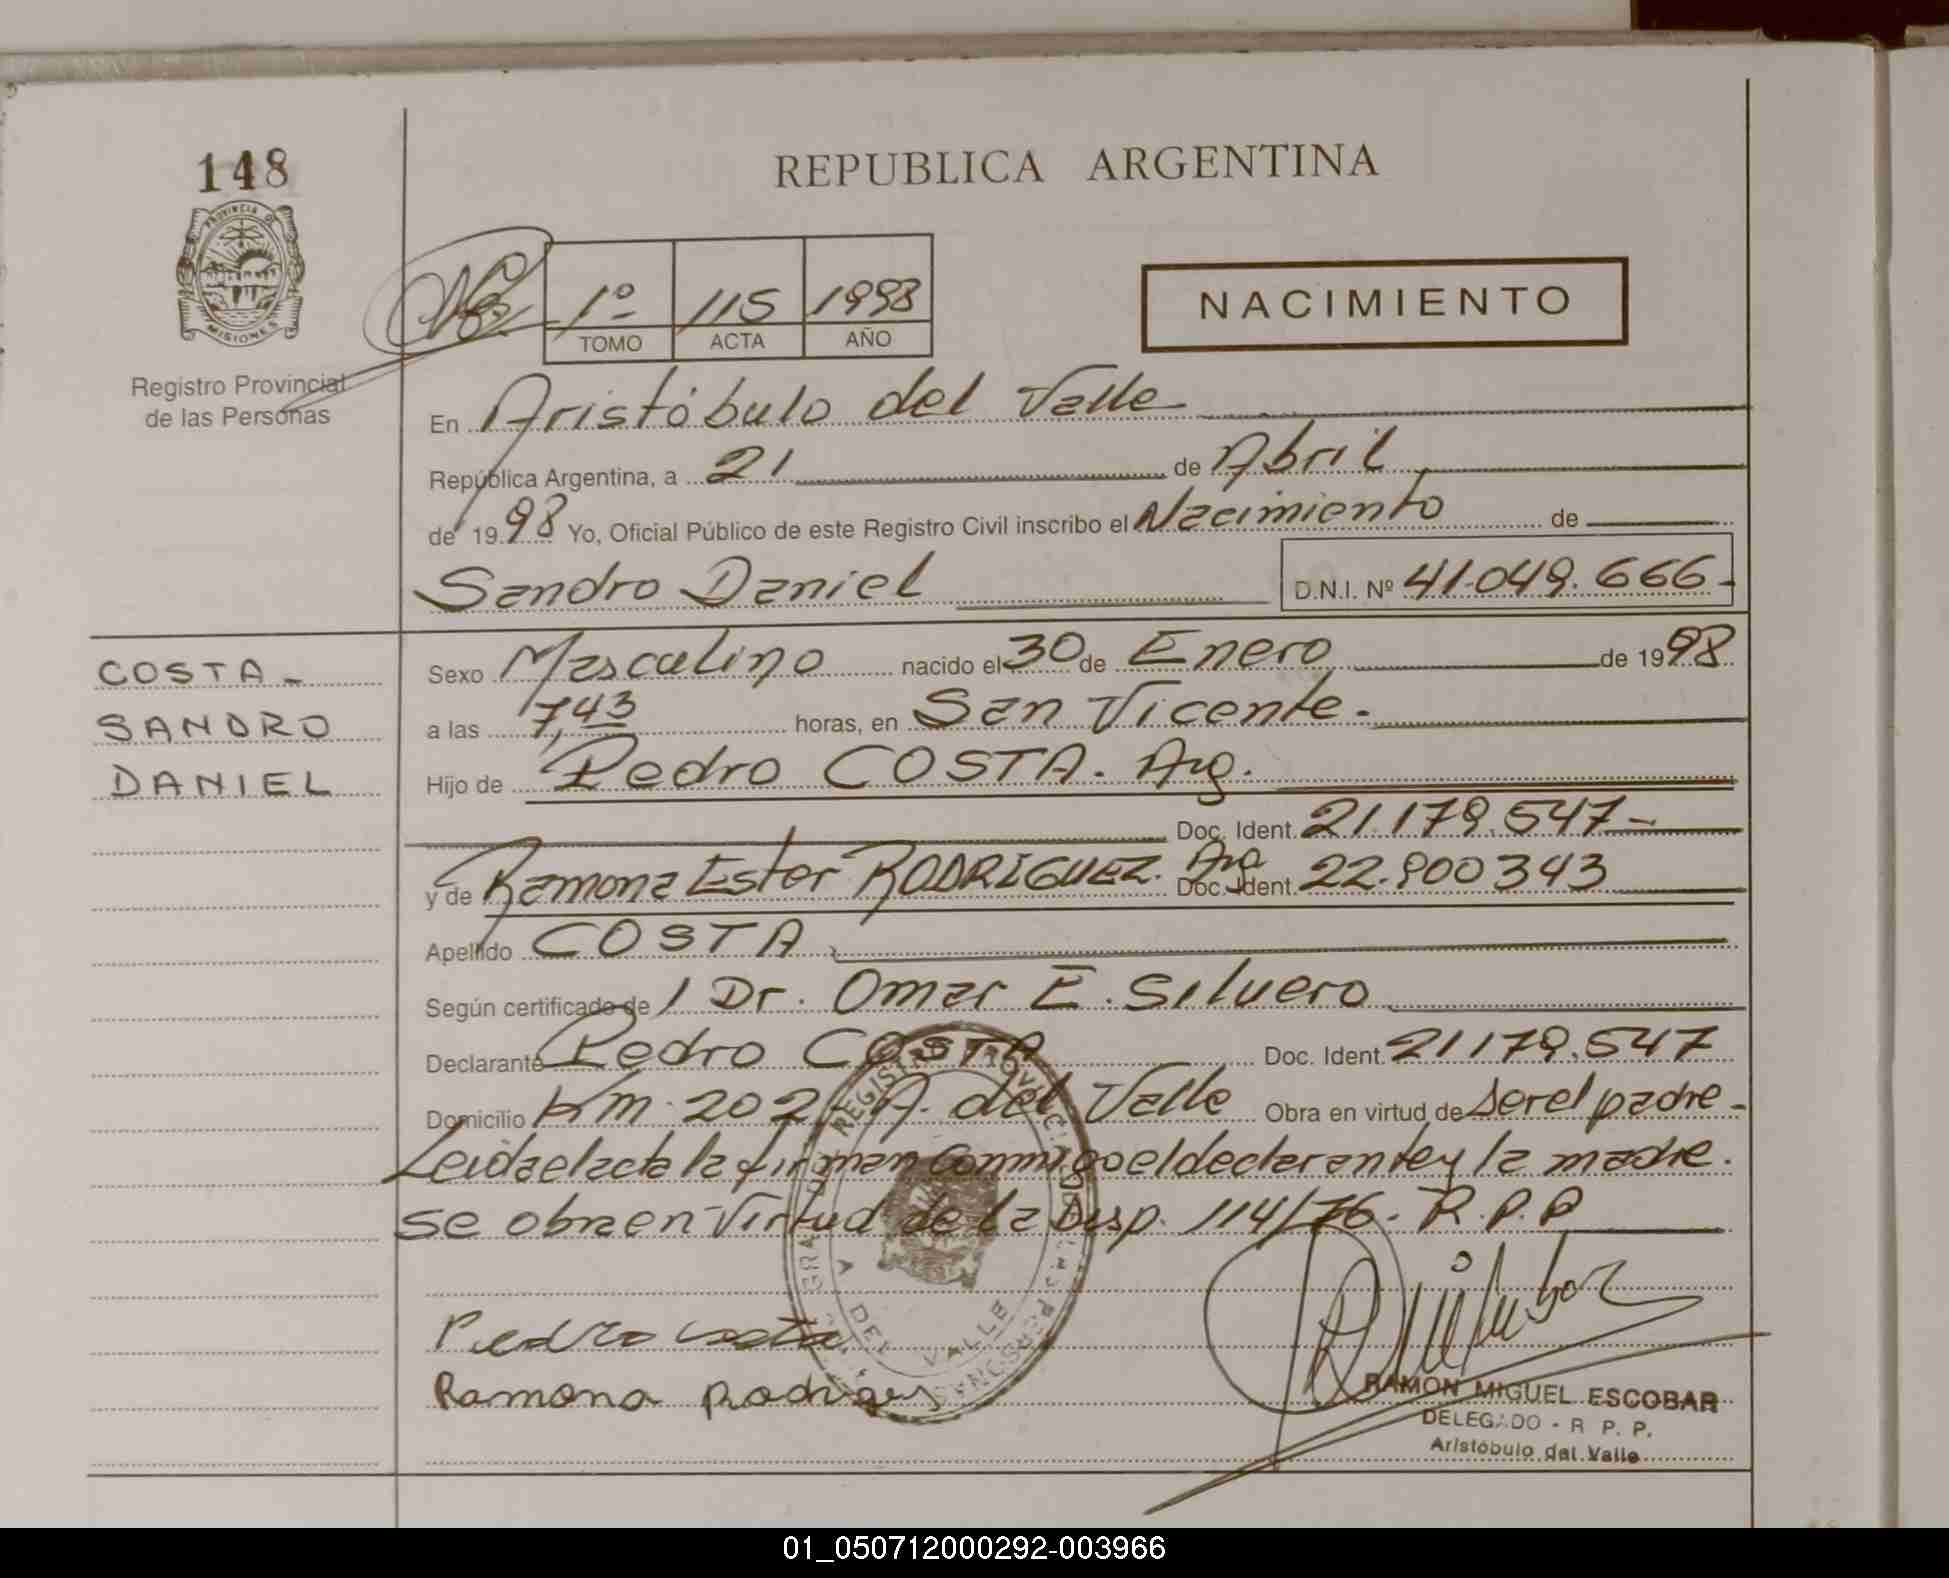 148
REPUBLICA ARGENTINA
PROVINCIA DE
MISIONES
Registro Provincial
de las Personas
1º 115 1998
TOMO ACTA AÑO
NACIMIENTO
En Aristóbulo del Valle
República Argentina, a 21 de Abril
de 1998 Yo, Oficial Público de este Registro Civil inscribo el Nacimiento de
Sandro Daniel D.N.I. Nº 41.049.666-
COSTA-
SANDRO
DANIEL
Sexo Masculino nacido el 30 de Enero de 1998
a las 7,43 horas, en San Vicente.
Hijo de Pedro COSTA. Arg.
Doc. Ident. 21.179.547-
y de Ramona Ester RODRIGUEZ. Arg Doc. Ident. 22.900343
Apellido COSTA
Según certificado de / Dr. Omar E. Silvero
Declarante Pedro COSTA Doc. Ident. 21179.547
Domicilio Km. 202- A. del Valle Obra en virtud de ser el padre-
Leida el acta la firman conmigo el declarante y la madre.
se obra en virtud de la Disp. 114/76. R.P.P
REGISTRO PROVINCIAL DE LAS PERSONAS
DEL VALLE
Pedro Costa
Ramona Rodriges
RAMON MIGUEL ESCOBAR
DELEGADO - R. P. P.
Aristóbulo del Valle
01_050712000292-003966